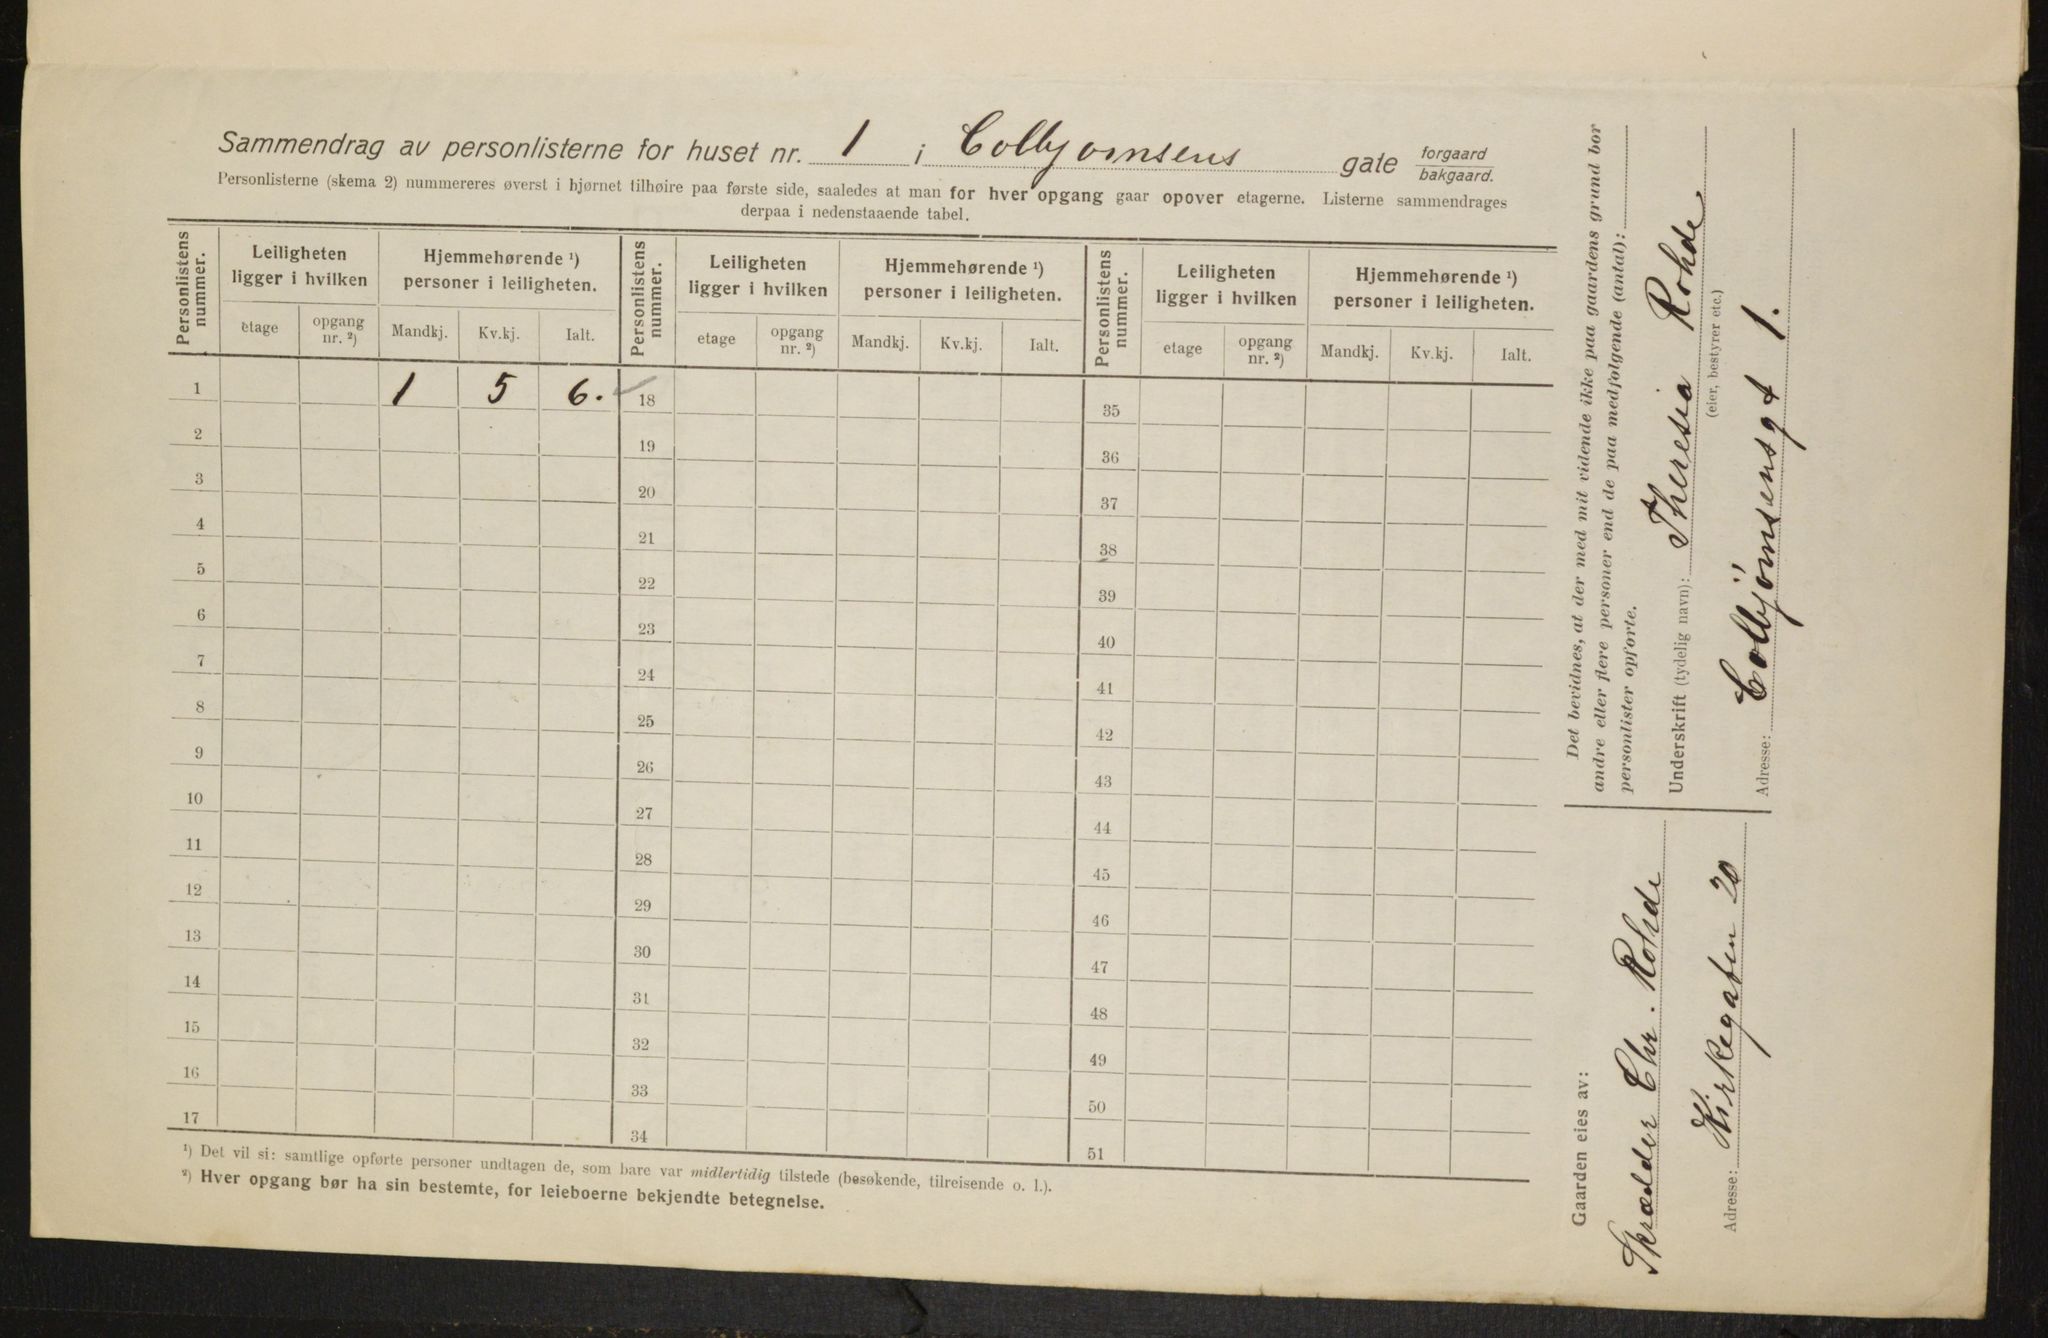 Sammendrag av personlisterne for huset nr. 1 i Colbjørnsens gate forgaard bakgaard.
Personlisterne (skema 2) nummereres øverst i hjørnet tilhøire paa første side, saaledes at man for hver opgang gaar opover etagerne. Listerne sammendrages
derpaa i nedenstaaende tabel.
Personlistens nummer. Leiligheten ligger i hvilken Hjemmehørende ¹) personer i leiligheten. Personlistens nummer. Leiligheten ligger i hvilken Hjemmehørende ¹) personer i leiligheten. Personlistens nummer. Leiligheten ligger i hvilken Hjemmehørende ¹) personer i leiligheten.
etage opgang nr. ²) Mandkj. Kv.kj. Ialt. etage opgang nr. ²) Mandkj. Kv.kj. Ialt. etage opgang nr. ²) Mandkj. Kv.kj. Ialt.
1 1 5 6. 18 35
2 19 36
3 20 37
4 21 38
5 22 39
6 23 40
7 24 41
8 25 42
9 26 43
10 27 44
11 28 45
12 29 46
13 30 47
14 31 48
15 32 49
16 33 50
17 34 51
¹) Det vil si: samtlige opførte personer undtagen de, som bare var midlertidig tilstede (besøkende, tilreisende o. l.).
²) Hver opgang bør ha sin bestemte, for leieboerne bekjendte betegnelse.
Det bevidnes, at der med mit vidende ikke paa gaardens grund bor
andre eller flere personer end de paa medfølgende (antal):
personlister opførte.
Underskrift (tydelig navn): Theresia Rohde
(eier, bestyrer etc.)
Adresse: Colbjörnsensgt 1.
Gaarden eies av:
Skrædder Chr. Rohde
Adresse: Kirkegaten 20